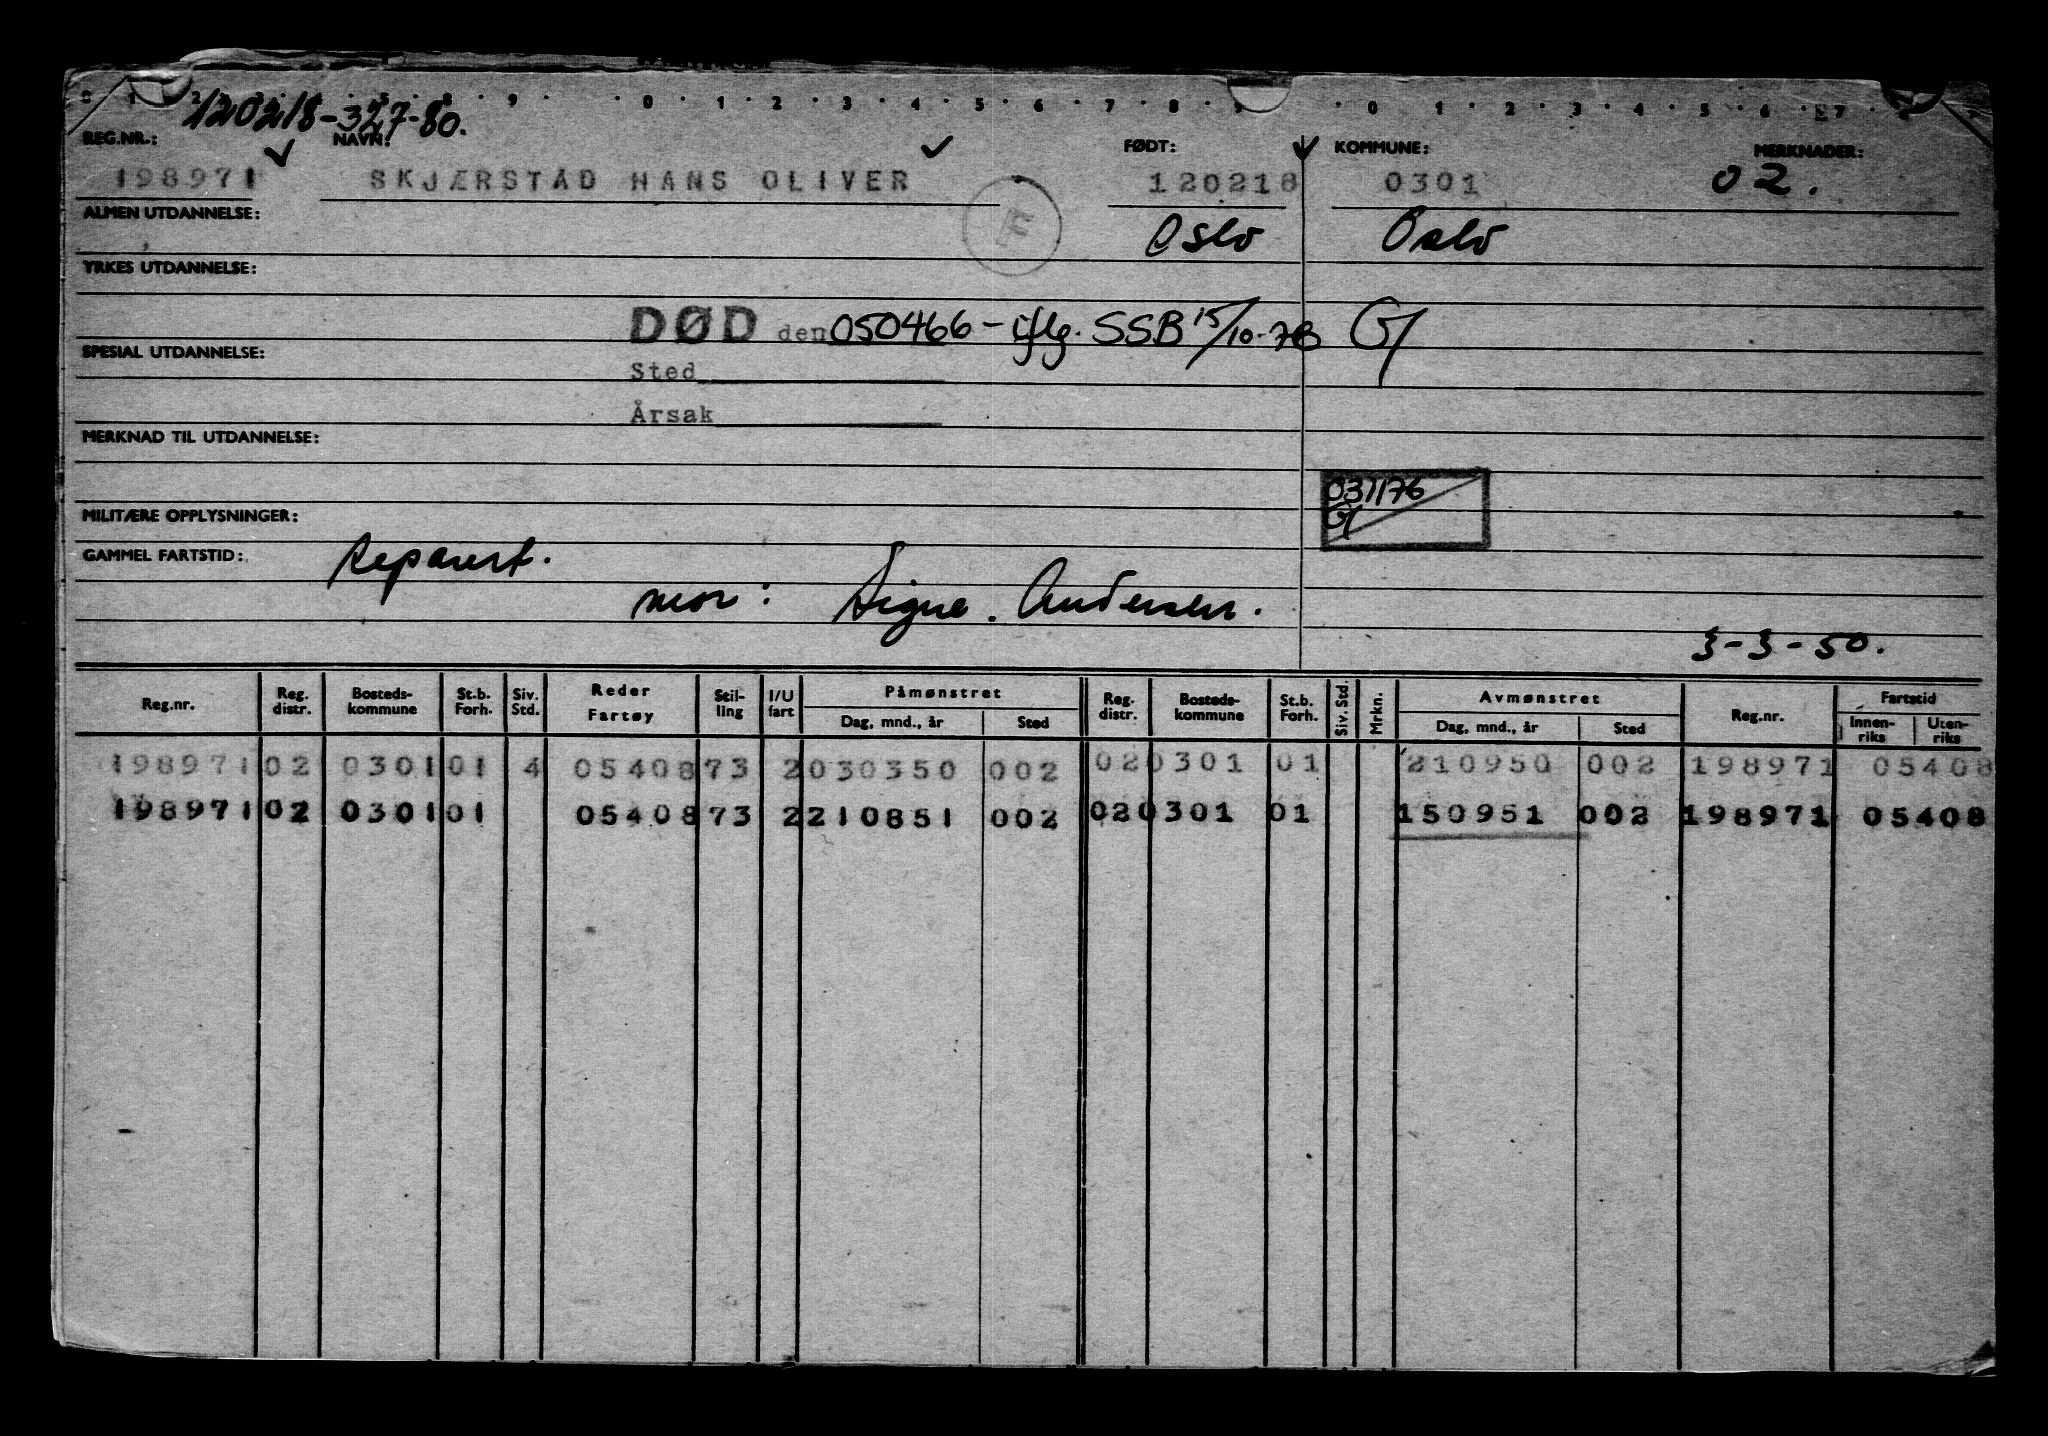 0 1 2 3 4 5 8 9 0 1 2 3 4 5 6 7 8 9 0 1 2 3 4 5 6 7
120218-327-80.
REG.NR.: NAVN: FØDT: KOMMUNE: MERKNADER:
198971 SKJÆRSTAD HANS OLIVER 120218 0301 02.
ALMEN UTDANNELSE: F Oslo Oslo
YRKES UTDANNELSE:
DØD den 050466 - iflg. SSB 15/10-78
SPESIAL UTDANNELSE:
Sted
Årsak
MERKNAD TIL UTDANNELSE:
031176
MILITÆRE OPPLYSNINGER:
GAMMEL FARTSTID: Reparert.
mor: Signe. Andersen.
3-3-50.
Reg.nr. Reg. distr. Bosteds-kommune St.b. Forh. Siv. Std. Reder Fartøy Stil-ling I/U fart Påmønstret Dag, mnd., år Sted Reg. distr. Bosteds-kommune St.b. Forh. Siv. Std. Mrkn. Avmønstret Dag, mnd., år Sted Reg.nr. Fartstid Innen-riks Uten-riks
198971 02 0301 01 4 05408 73 2 030350 002 02 0301 01 210950 002 198971 05408
198971 02 0301 01 05408 73 2 210851 002 02 0301 01 150951 002 198971 05408